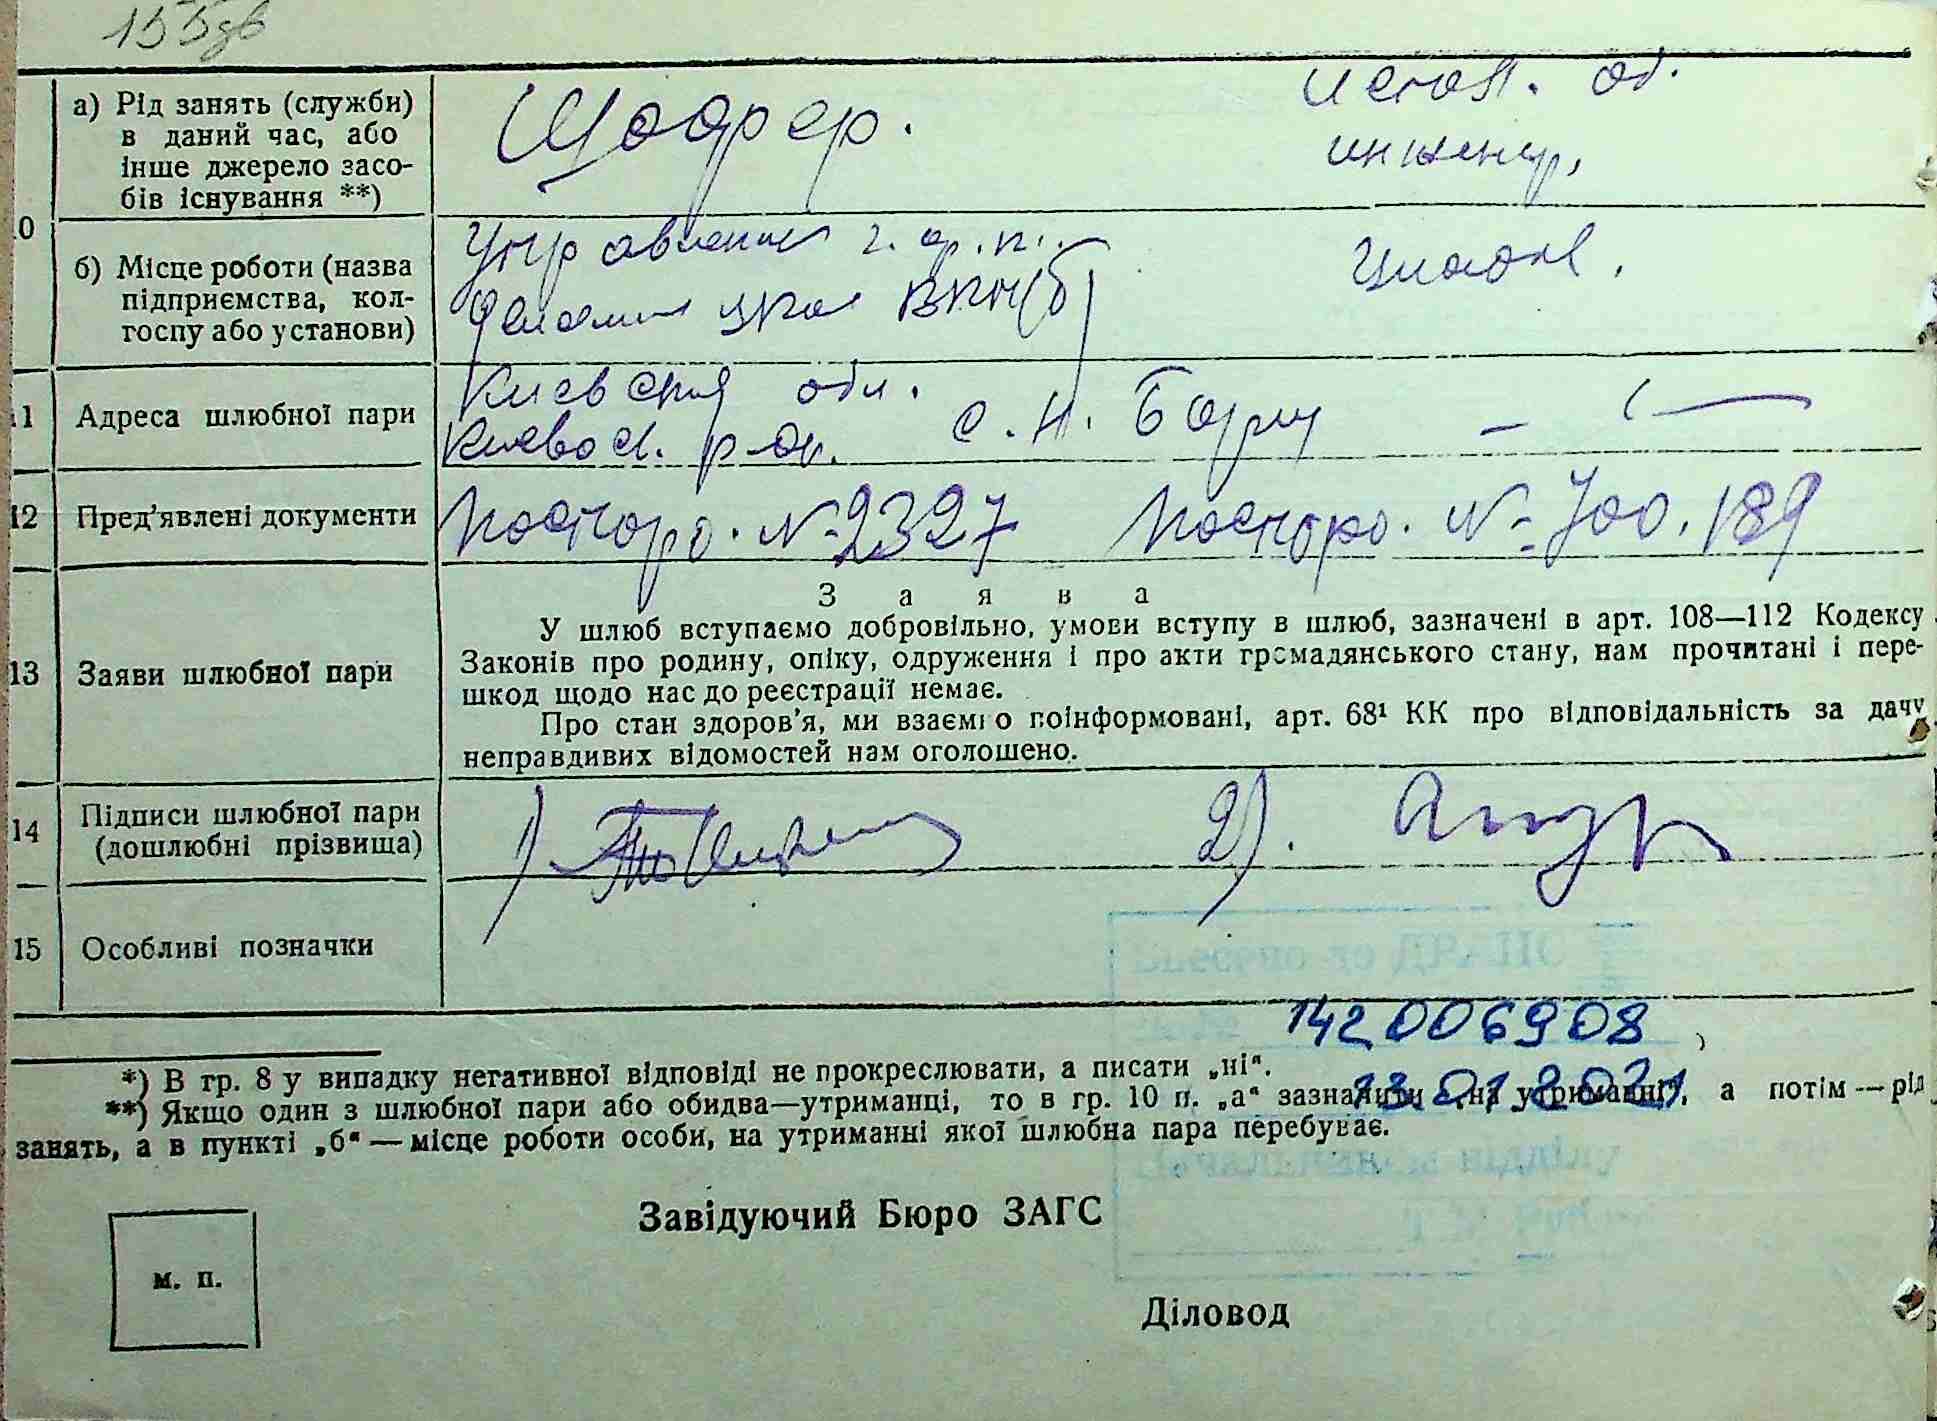 155зв
10
а) Рід занять (служби)
в даний час, або
інше джерело засо-
бів існування **)
Шофер.
инженер,
б) Місце роботи (назва
підприємства, кол-
госпу або установи)
Управления
11
Адреса шлюбної пари
Киевская обл.
Киевос. р-он. с. Н.
12
Пред'явлені документи
Паспорт. № 2327
Паспорт. № 700.189
13
Заяви шлюбної пари
Заява
У шлюб вступаємо добровільно, умови вступу в шлюб, зазначені в арт. 108—112 Кодексу
Законів про родину, опіку, одруження і про акти громадянського стану, нам прочитані і пере-
шкод щодо нас до реєстрації немає.
Про стан здоров'я, ми взаємно поінформовані, арт. 68¹ КК про відповідальність за дачу
неправдивих відомостей нам оголошено.
14
Підписи шлюбної пари
(дошлюбні прізвища)
1)
2).
15
Особливі позначки
142006908
13.01.2021
*) В гр. 8 у випадку негативної відповіді не прокреслювати, а писати „ні“.
**) Якщо один з шлюбної пари або обидва—утриманці, то в гр. 10 п. „а“ зазначити „на утриманні“, а потім — рід
занять, а в пункті „б“ — місце роботи особи, на утриманні якої шлюбна пара перебуває.
Завідуючий Бюро ЗАГС
м. п.
Діловод